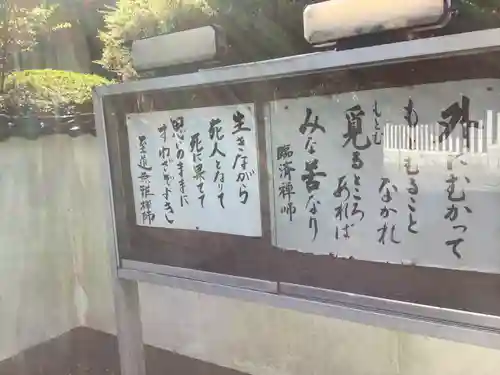 外にむかって
もとむること
なかれ
もとむ
覓るところ
あれば
みな苦なり
臨済禅師
生きながら
死人となりて
死に果てて
思いのままに
するわざぞよき
至道無難禅師